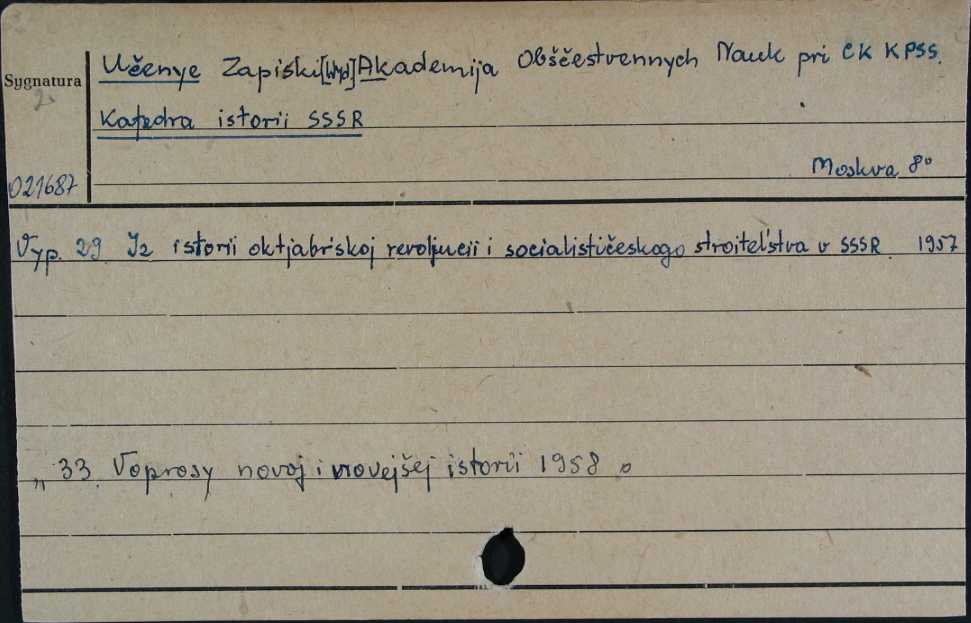 Učenye Zapiski [Wyd] Akademija Obščestvennych Nauk pri CK KPSS.
Sygnatura
2.
Katedra istorii SSSR
Moskva 8°
021687
Vyp. 29 Iz istorii oktjabr'skoj revoljucii i socialističeskogo stroitel'stva v SSSR. 1957
„ 33. Voprosy novoj i novejšej istorii 1958.